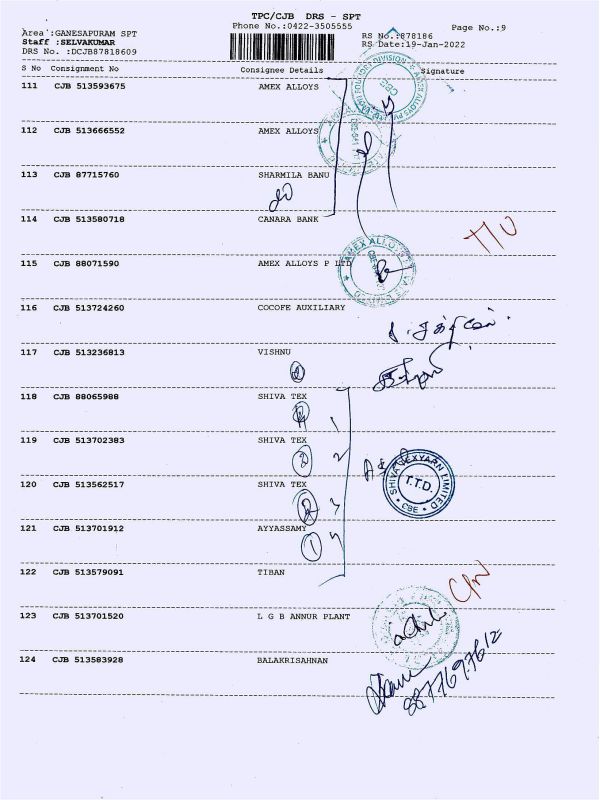 TPC/CJB DRS - SPT
Phone No.:0422-3505555
Page No.:9
Area :GANESAPURAM SPT
Staff :SELVAKUMAR
DRS No. :DCJB87818609
RS No.:878186
RS Date:19-Jan-2022
S No Consignment No Consignee Details Signature
111 CJB 513593675 AMEX ALLOYS
112 CJB 513666552 AMEX ALLOYS
113 CJB 87715760 SHARMILA BANU
114 CJB 513580718 CANARA BANK
115 CJB 88071590 AMEX ALLOYS P LTD
116 CJB 513724260 COCOFE AUXILIARY
117 CJB 513236813 VISHNU
118 CJB 88065988 SHIVA TEX
1
119 CJB 513702383 SHIVA TEX
2 2
120 CJB 513562517 SHIVA TEX
SHIVA TEXYARN LIMITED
T.T.D.
CBE
3
121 CJB 513701912 AYYASSAMY
1
122 CJB 513579091 TIBAN
123 CJB 513701520 L G B ANNUR PLANT
124 CJB 513583928 BALAKRISAHNAN